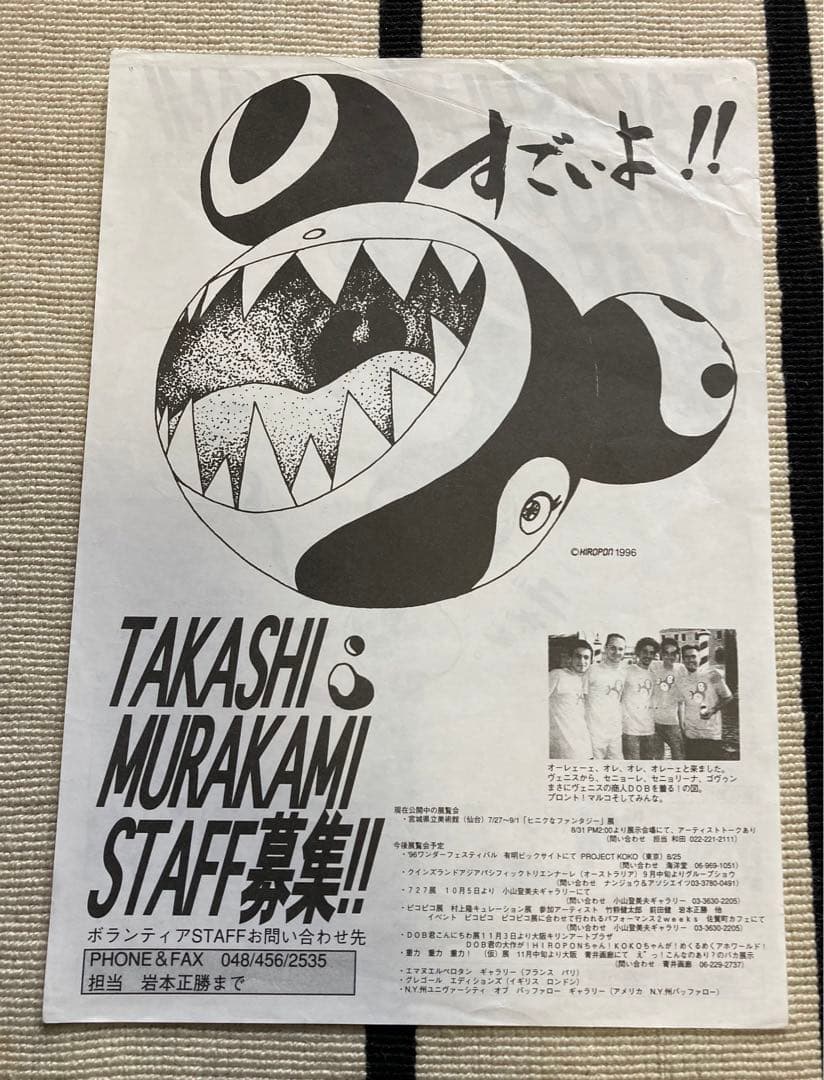 すごいよ!!
©HIROPON 1996
TAKASHI
MURAKAMI
STAFF募集!!
ボランティアSTAFFお問い合わせ先
PHONE&FAX 048/456/2535
担当 岩本正勝まで
オーレェーェ、オレ、オレ、オレーェと来ました。
ヴェニスから、セニョーレ、セニョリーナ、ゴヴゥン
まさにヴェニスの商人DOBを着る!の図。
プロント!マルコそしてみんな。
現在公開中の展覧会
・宮城県立美術館(仙台)7/27~9/1「ヒニクなファンタジー」展
8/31 PM2:00より展示会場にて、アーティストトークあり
(問い合わせ 担当 和田 022-221-2111)
今後展覧会予定
・'96ワンダーフェスティバル 有明ビックサイトにて PROJECT KOKO(東京)8/25
(問い合わせ 海洋堂 06-969-1051)
・クインズランドアジアパシフィックトリエンナーレ(オーストラリア)9月中旬よりグループショウ
(問い合わせ ナンジョウ&アソシエイツ03-3780-0491)
・727展 10月5日より 小山登美夫ギャラリーにて
(問い合わせ 小山登美夫ギャラリー 03-3630-2205)
・ピコピコ展 村上隆キュレーション展 参加アーティスト 竹野健太郎 前田健 岩本正勝 他
イベント ピコピコ ピコピコ展に合わせて行われるパフォーマンス2weeks 佐賀町カフェにて
(問い合わせ 小山登美夫ギャラリー 03-3630-2205)
・DOB君こんにちわ展11月3日より大阪キリンアートプラザ
DOB君の大作が!HIROPONちゃん!KOKOちゃんが!めくるめくアホワールド!
・重力 重力 重力!(仮)展 11月中旬より大阪 青井画廊にて え"っ!こんなのあり?のバカ展示
(問い合わせ 青井画廊 06-229-2737)
・エマヌエルペロタン ギャラリー(フランス パリ)
・グレゴール エディションズ(イギリス ロンドン)
・N.Y.州ユニヴァーシティ オブ バッファロー ギャラリー(アメリカ N.Y.州バッファロー)